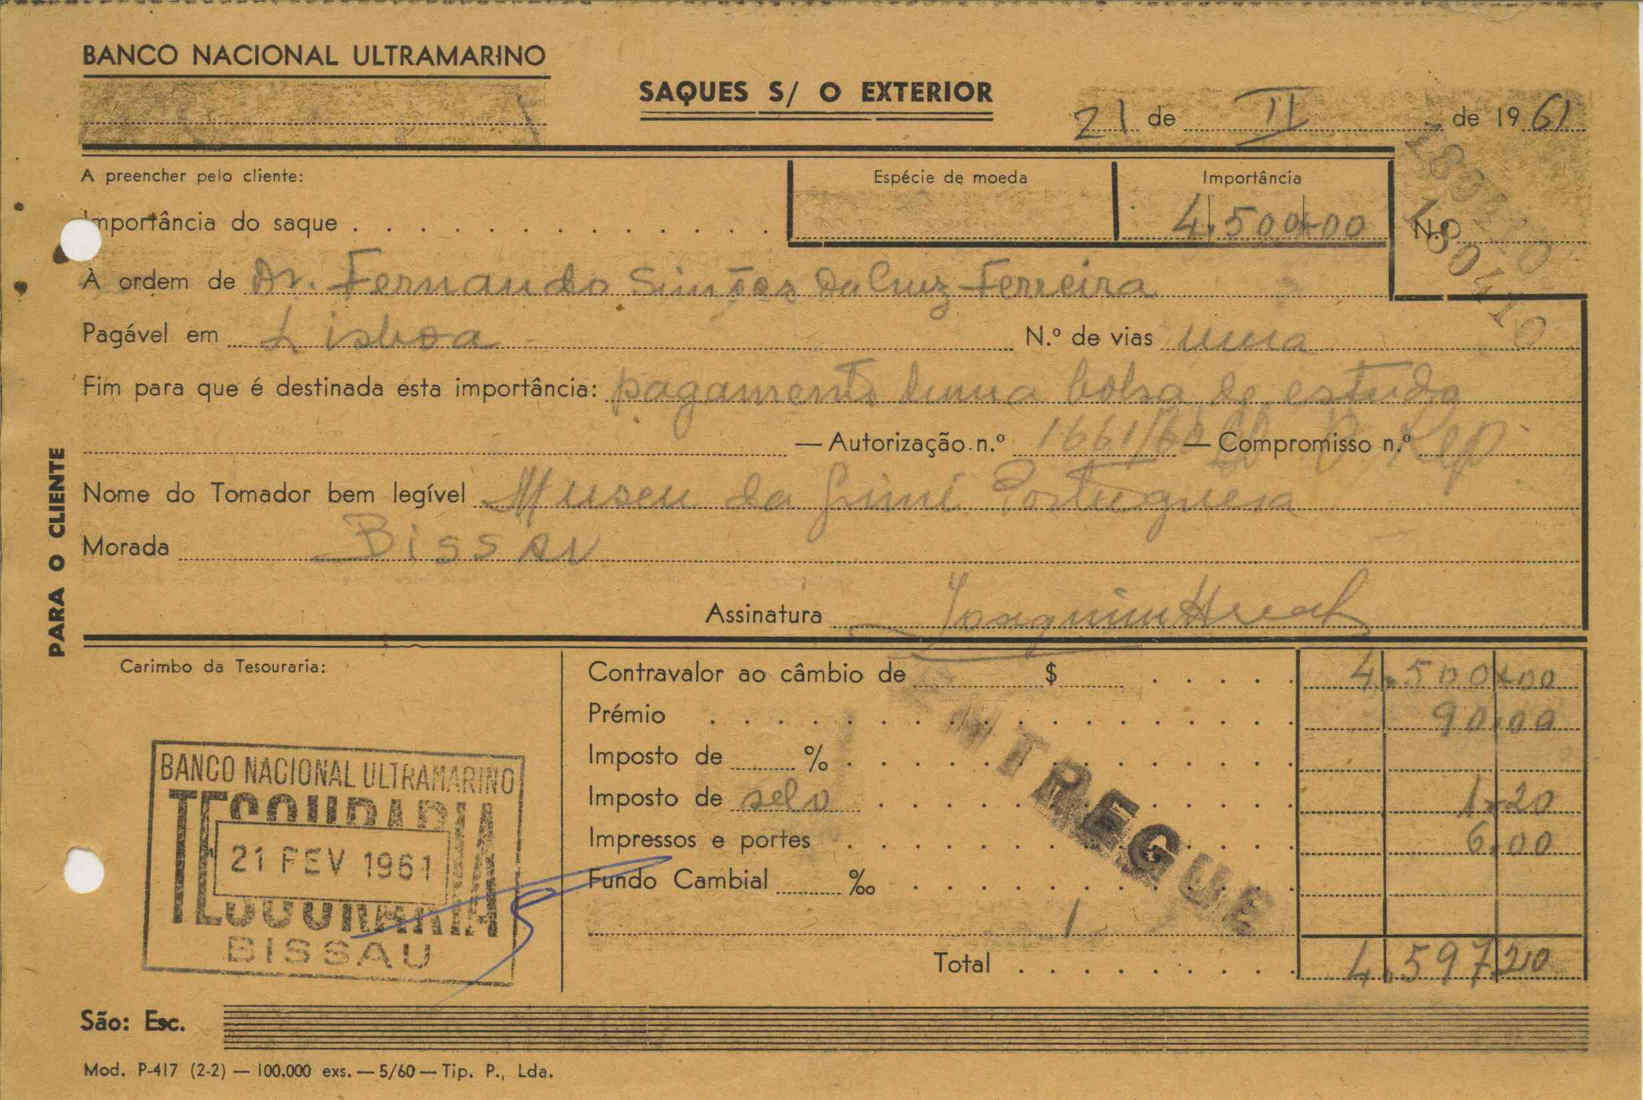 BANCO NACIONAL ULTRAMARINO
SAQUES S/ O EXTERIOR
21 de II de 1961
A preencher pelo cliente:
Espécie de moeda
Importância
Importância do saque . . . . . . . . . . . . . 4.500$00
N.º 180410
180410
À ordem de Dr. Fernando Simões da Cruz Ferreira
Pagável em Lisboa N.º de vias uma
Fim para que é destinada esta importância: pagamento duma bolsa de estudo
— Autorização n.º 1661/62 — Compromisso n.º
Nome do Tomador bem legível Museu da Guiné Portuguesa
Morada Bissau
Assinatura Joaquim
PARA O CLIENTE
Carimbo da Tesouraria:
BANCO NACIONAL ULTRAMARINO
TESOURARIA
21 FEV 1961
TESOURARIA
BISSAU
Contravalor ao câmbio de $ . . . . . 4.500$00
Prémio 90.00
Imposto de %
Imposto de selo 1.20
Impressos e portes 6.00
Fundo Cambial ‰
ENTREGUE
Total 4.597,20
São: Esc.
Mod. P-417 (2-2) — 100.000 exs. — 5/60 — Tip. P., Lda.